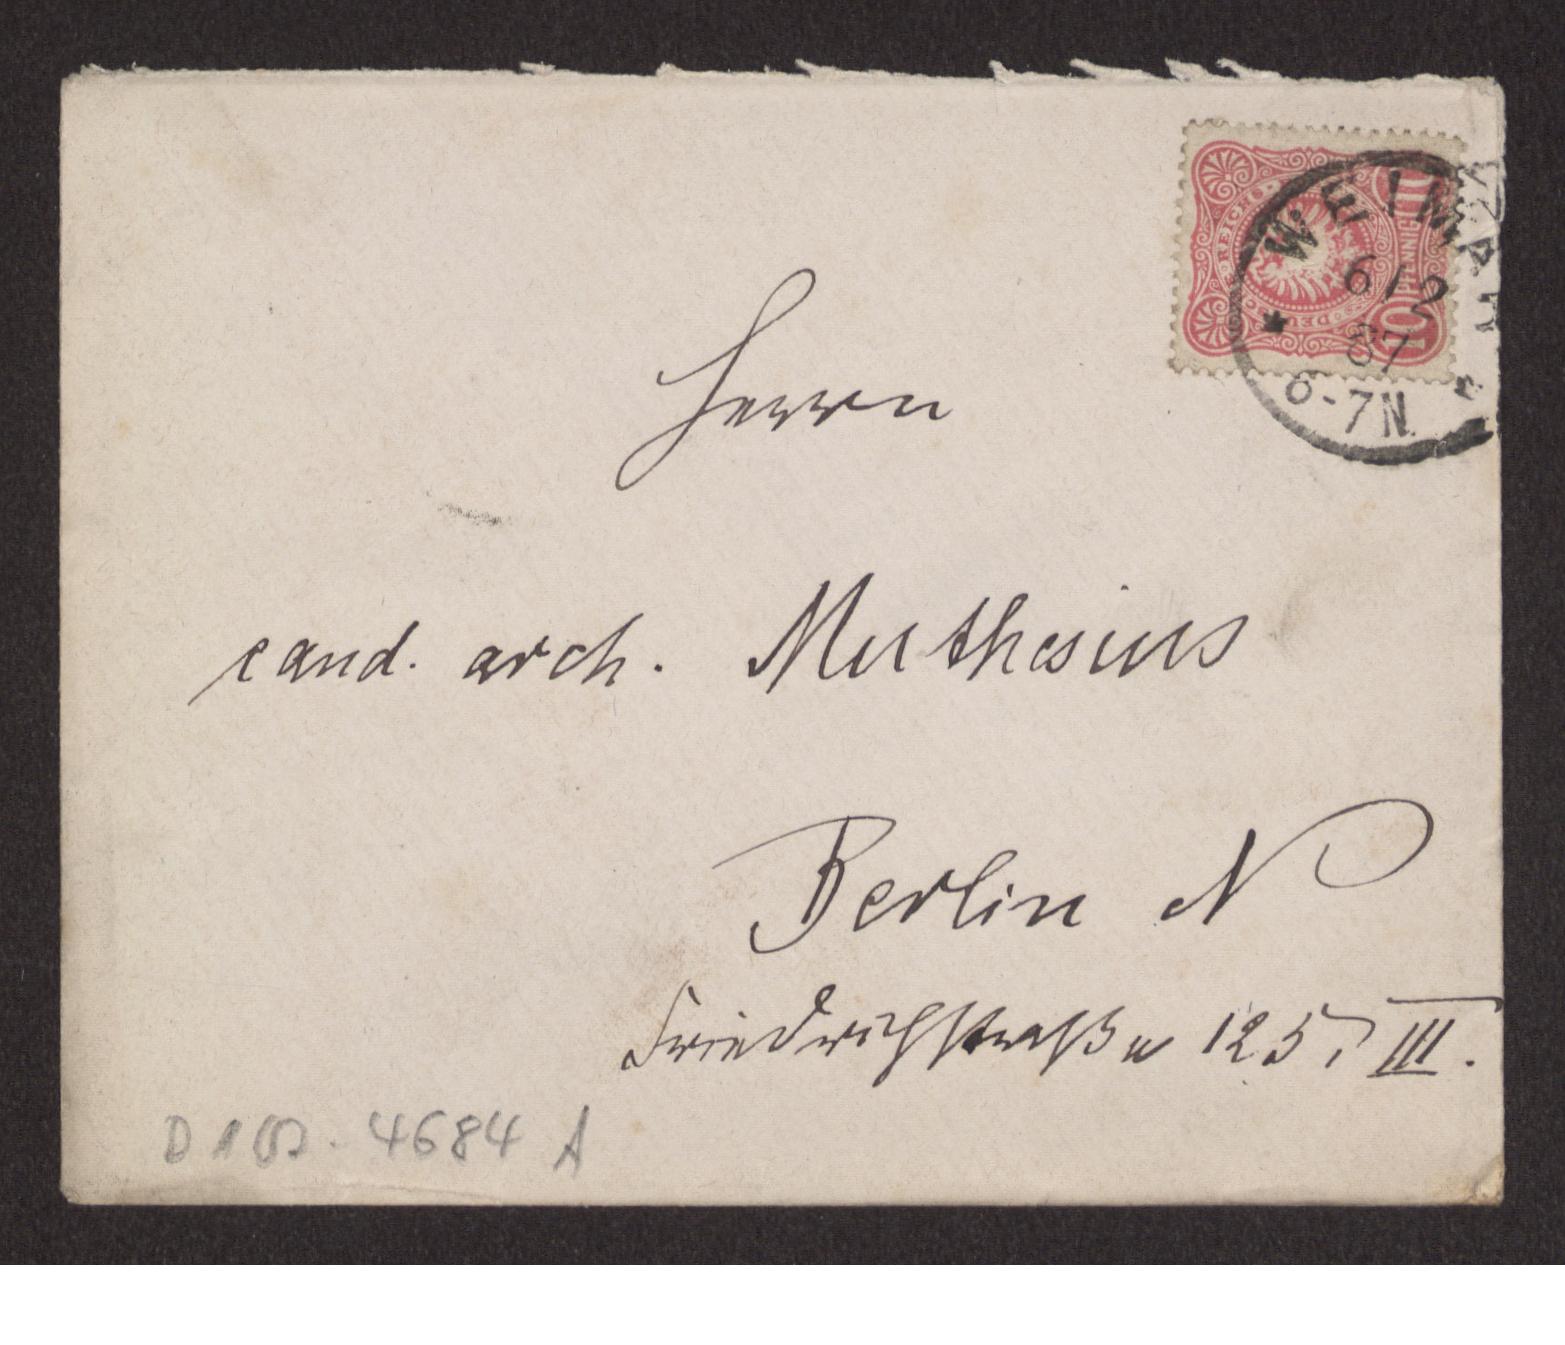 10 PFENNIG 10
DEUTSCHE REICHS-POST
WEIMAR
6/2
87
6-7N.
Herrn
cand. arch. Muthesius
Berlin N
Friedrichstraße 125, III.
D 4684 A